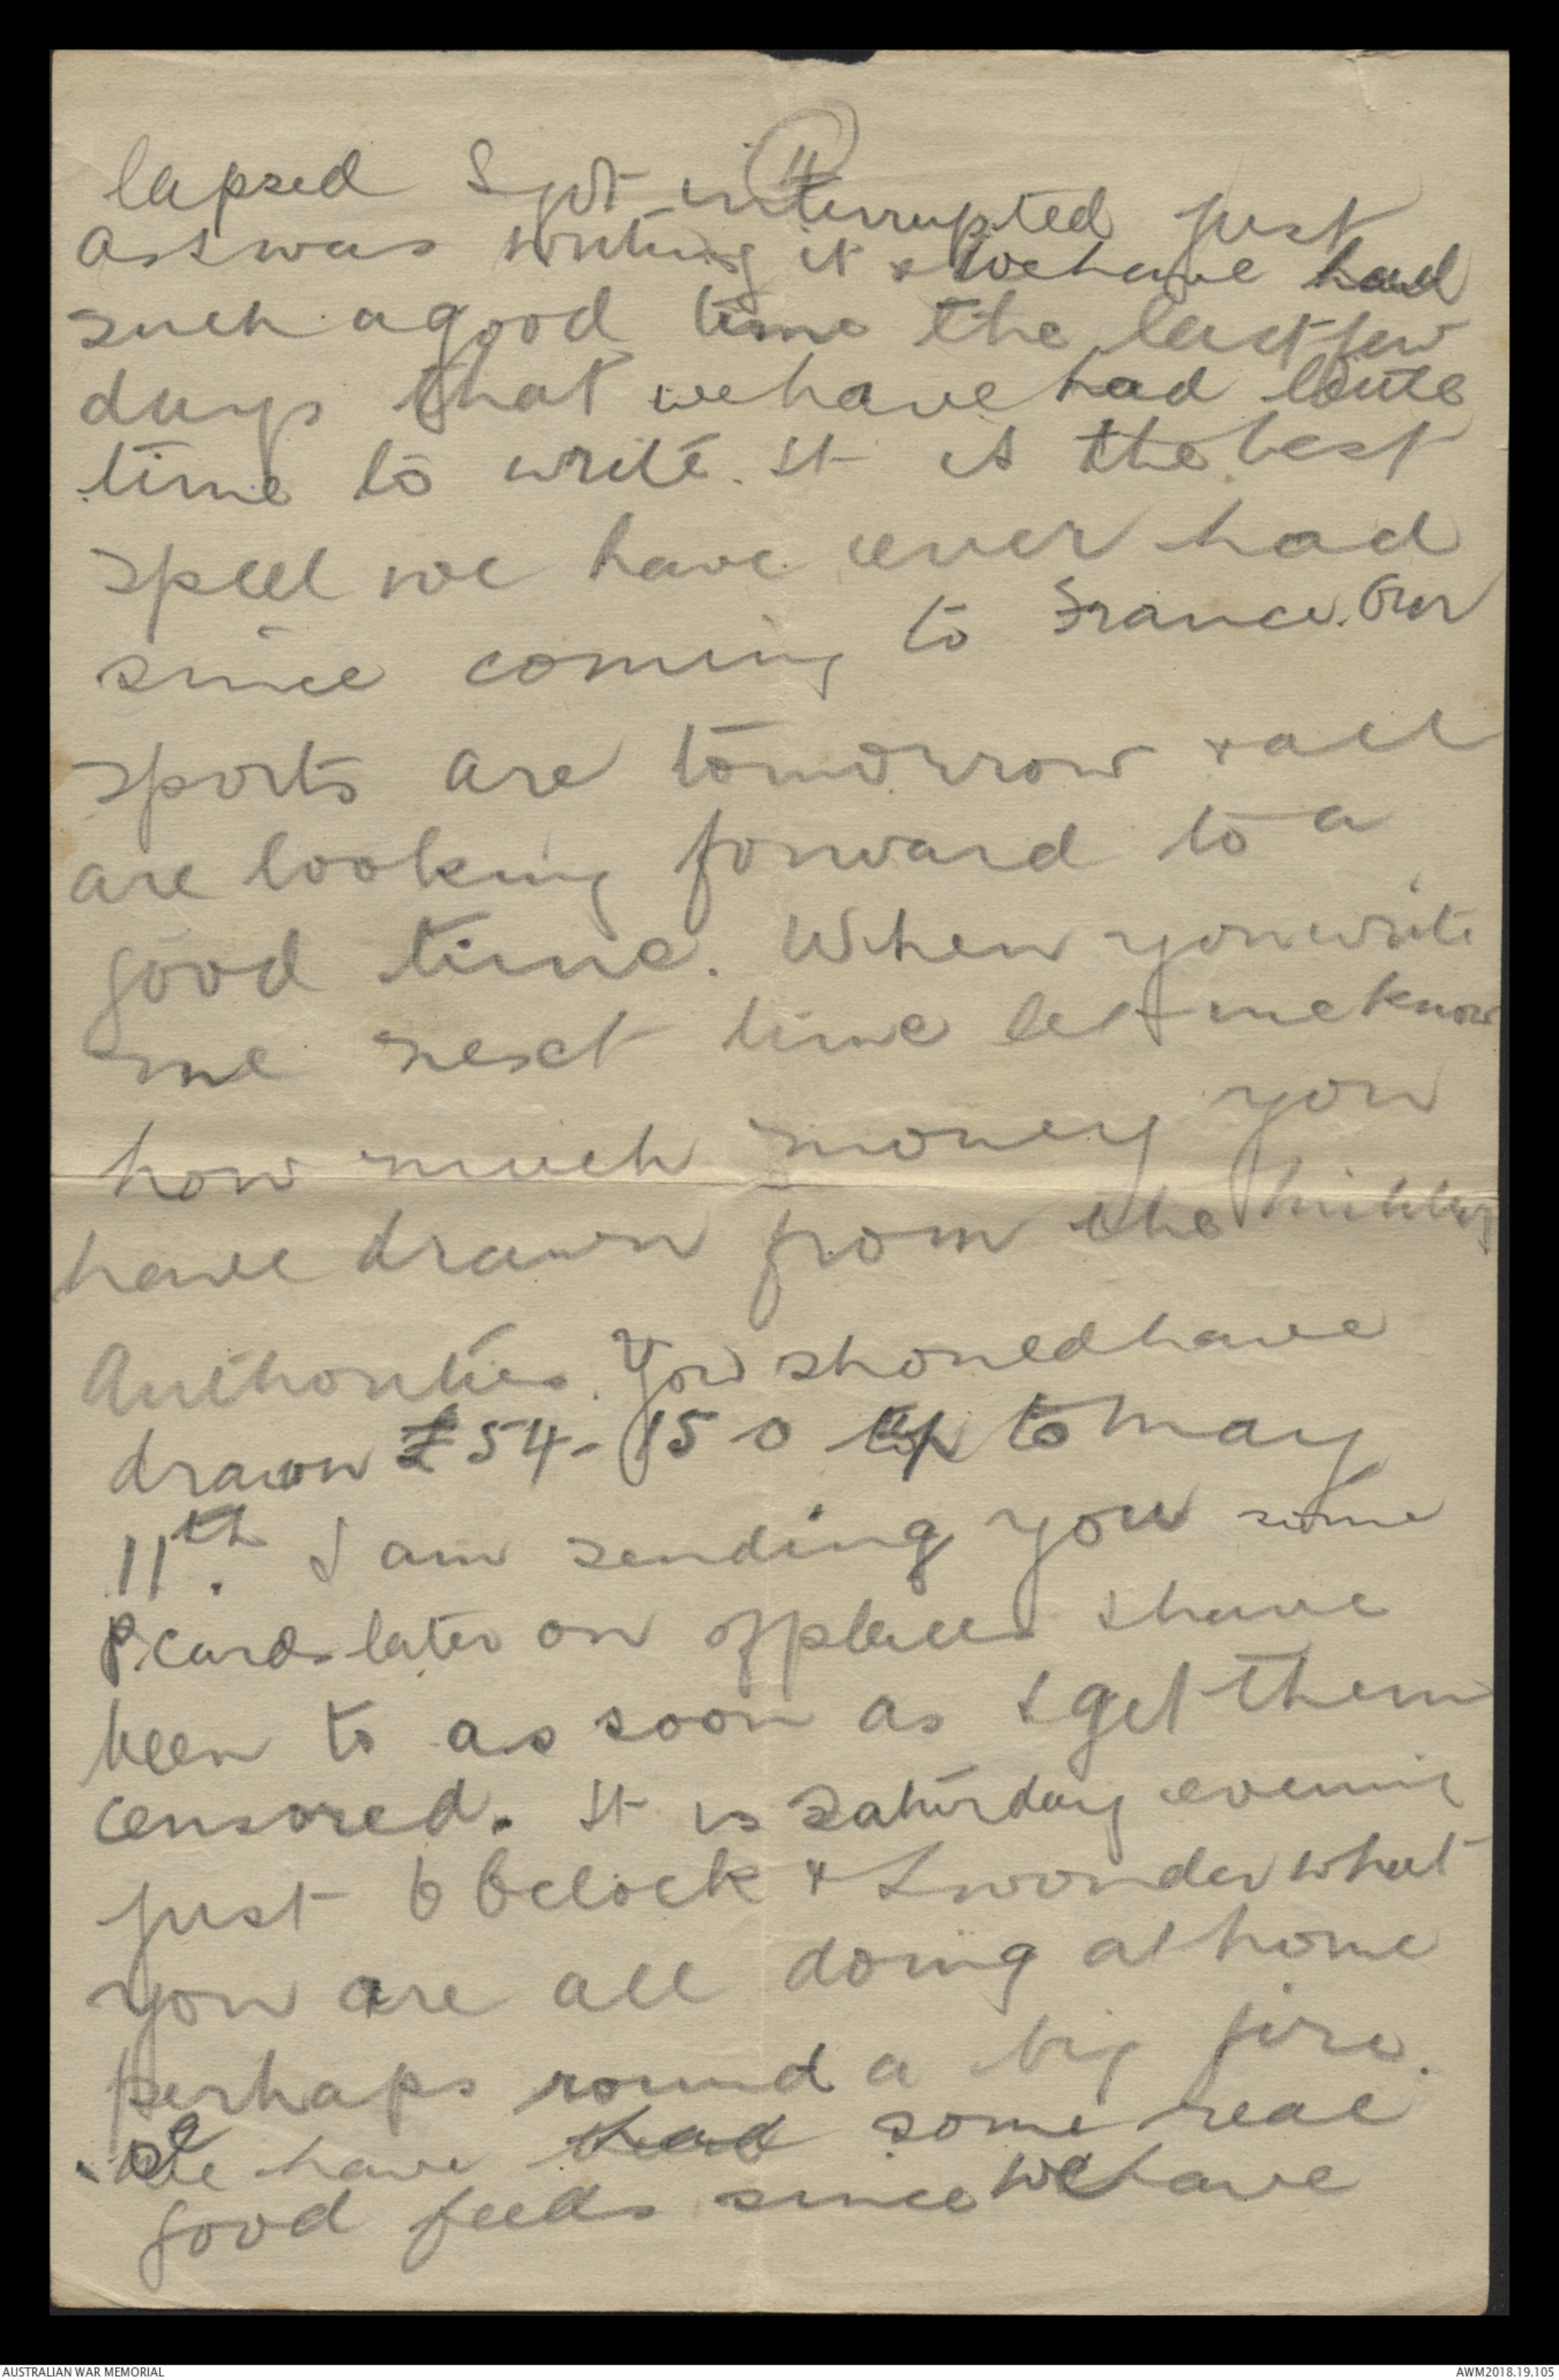 4
lapsed I got interrupted just
as I was writing it & We have had
such a good time the last few
days that we have had little
time to write. It is the best
spell we have ever had
since coming to France. Our
sports are tomorrow & all
are looking forward to a
good time. When you write
me next time let me know
how much money you
have drawn from the Military
Authorities. You should have
drawn £54-15-0 up to May
11th. I am sending you some
P. cards later on of places I have
been to as soon as I get them
censored. It is Saturday evening
just 6 Oclock & I wonder what
you are all doing at home
perhaps round a big fire.
We have had some real
good feeds since we have
AUSTRALIAN WAR MEMORIAL
AWM2018.19.105